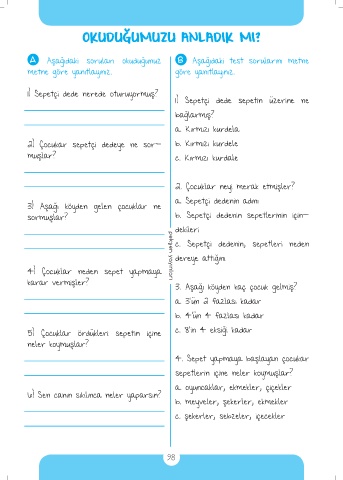 OKUDUĞUMUZU ANLADIK MI?
A Aşağıdaki soruları okuduğumuz
metne göre yanıtlayınız.
1) Sepetçi dede nerede oturuyormuş?
2) Çocuklar sepetçi dedeye ne sor-
muşlar?
3) Aşağı köyden gelen çocuklar ne
sormuşlar?
4) Çocuklar neden sepet yapmaya
karar vermişler?
5) Çocuklar ördükleri sepetin içine
neler koymuşlar?
6) Sen canın sıkılınca neler yaparsın?
B Aşağıdaki test sorularını metne
göre yanıtlayınız.
1) Sepetçi dede sepetin üzerine ne
bağlarmış?
a. Kırmızı kurdela
b. Kırmızı kurdele
c. Kırmızı kurdale
2. Çocuklar neyi merak etmişler?
a. Sepetçi dedenin adını
b. Sepetçi dedenin sepetlerinin için-
dekileri
c. Sepetçi dedenin, sepetleri neden
dereye attığını
3. Aşağı köyden kaç çocuk gelmiş?
a. 3'ün 2 fazlası kadar
b. 4'ün 4 fazlası kadar
c. 8'in 4 eksiği kadar
4. Sepet yapmaya başlayan çocuklar
sepetlerin içine neler koymuşlar?
a. oyuncaklar, ekmekler, çiçekler
b. meyveler, şekerler, ekmekler
c. şekerler, sebzeler, içecekler
98